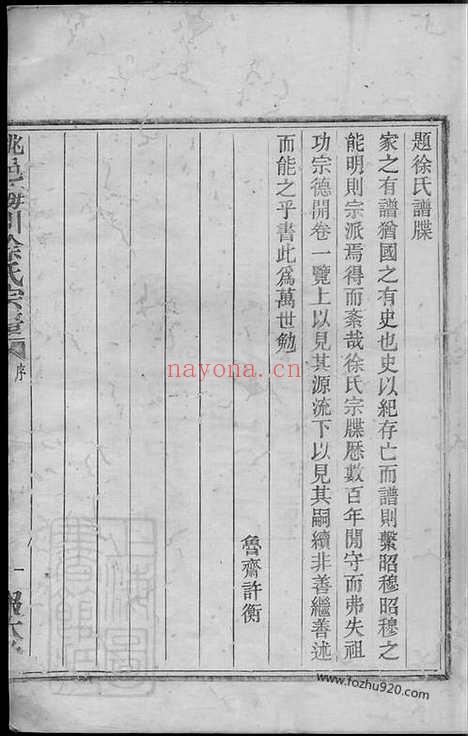 題徐氏譜牒
家之有譜猶國之有史也史以紀存亡而譜則繫昭穆昭穆之
能明則宗派焉得而紊哉徐氏宗牒歷數百年閒守而弗失祖
功宗德開卷一覽上以見其源流下以見其嗣續非善繼善述
而能之乎書此爲萬世勉
魯齋許衡
徐氏宗譜
序
一
nayona.cn
www.fozhu920.com